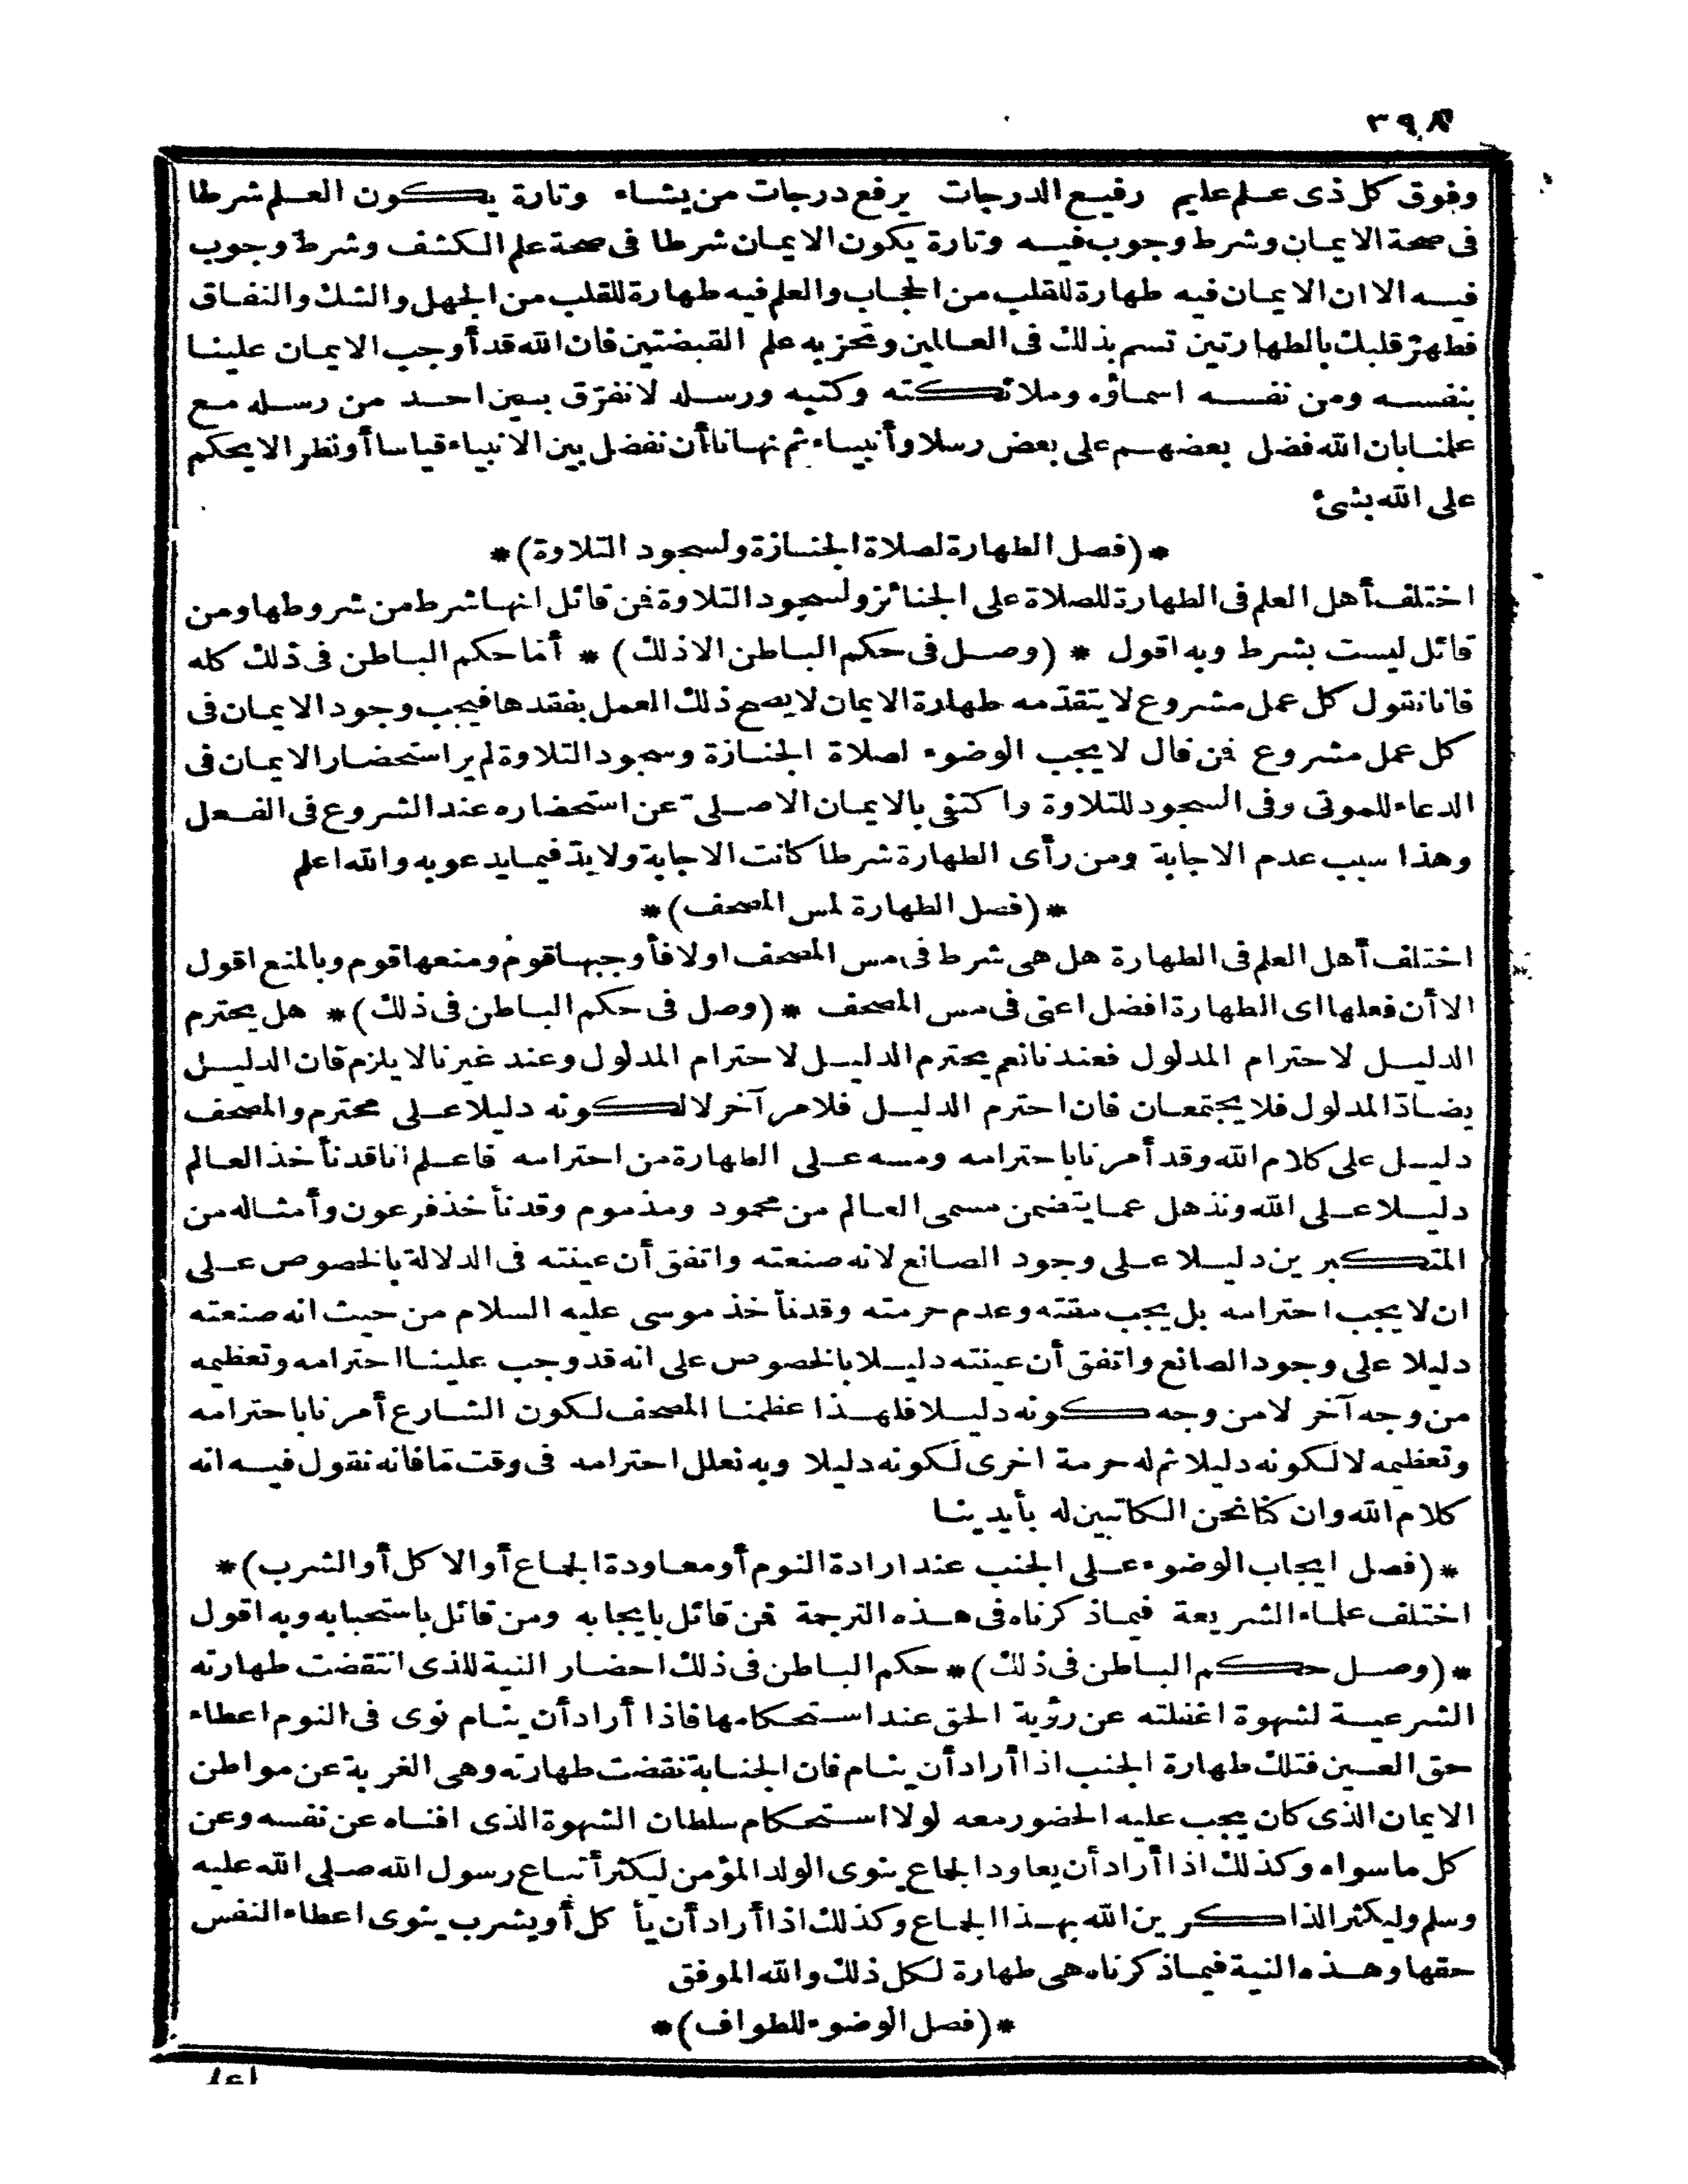 ٣٩٨
وفوق كل ذى عـلم عليم رفيـع الدرجات يرفع درجات من يشـاء وتارة يكون العـلم شرطا
فى صحة الايمـان وشرط وجوب فيـه وتارة يكون الايمـان شرطا فى صحة علم الكشف وشرط وجوب
فيـه الا ان الايمـان فيه طهارة للقلب من الحجـاب والعلم فيه طهارة للقلب من الجهل والشك والنفـاق
فطهر قلبك بالطهارتين تسم بذلك فى العـالمين وتحز به علم القبضتين فان الله قد أوجب الايمـان علينـا
بنفسـه ومن نفسـه اسمـاؤه وملائكته وكتبه ورسـله لا نفرّق بـين احـد من رسـله مـع
علمنـا بان الله فضل بعضهـم على بعض رسلا وأنبيـاء ثم نهـانا أن نفضل بين الانبيـاء قياسا أو نظر الا يحكم
على الله بشئ
*(فصل الطهارة لصلاة الجنـازة ولسجود التلاوة)*
اختلف أهل العلم فى الطهارة للصلاة على الجنائز ولسجود التلاوة فمن قائل انهـا شرط من شروطها ومن
قائل ليست بشرط وبه اقول * (وصـل فى حكم البـاطن الا ذلك) * أمّا حكم البـاطن فى ذلك كله
فانا نقول كل عمل مشروع لا يتقدّمه طهارة الايمان لا يصح ذلك العمل بفقدها فيجب وجود الايمـان فى
كل عمل مشروع فمن قال لا يجب الوضوء لصلاة الجنـازة وسجود التلاوة لم ير استحضـار الايمـان فى
الدعاء للموتى وفى السجود للتلاوة واكتفى بالايمـان الاصـلىّ عن استحضاره عند الشروع فى الفـعل
وهذا سبب عدم الاجابة ومن رأى الطهارة شرطا كانت الاجابة ولا بدّ فيمـا يدعو به والله اعلم
*(فصل الطهارة لمس المصحف)*
اختلف أهل العلم فى الطهارة هل هى شرط فى مس المصحف او لا فأوجبهـا قوم ومنعها قوم وبالمنع اقول
الا أن فعلها اى الطهارة افضل اعنى فى مس المصحف *(وصل فى حكم البـاطن فى ذلك)* هل يحترم
الدليـل لاحترام المدلول فعندنا نعم يحترم الدليـل لاحترام المدلول وعند غيرنا لا يلزم فان الدليـل
يضـادّ المدلول فلا يجتمعـان فان احترم الدليـل فلامر آخر لا لكونه دليلا عـلى محترم والمصحف
دليـل على كلام الله وقد أمرنا باحترامه ومسه عـلى الطهارة من احترامه فاعـلم انا قد نأخذ العـالم
دليـلا عـلى الله ونذهل عمـا يتضمن مسمى العـالم من محمود ومذموم وقد نأخذ فرعون وأمثـاله من
المتكبرين دليـلا عـلى وجود الصـانع لانه صنعته واتفق أن عينته فى الدلالة بالخصوص عـلى
ان لا يجب احترامه بل يجب مقته وعدم حرمته وقد نأخذ موسى عليه السلام من حيث انه صنعته
دليلا على وجود الصانع واتفق أن عينته دليـلا بالخصوص على انه قد وجب علينـا احترامه وتعظيمه
من وجه آخر لا من وجه كونه دليـلا فلهـذا عظمنـا المصحف لكون الشـارع أمرنا باحترامه
وتعظيمه لا لكونه دليلا ثم له حرمة اخرى لكونه دليلا وبه نعلل احترامه فى وقت مّا فانه نقول فيـه انه
كلام الله وان كنّا نحن الكاتبين له بأيدينـا
*(فصل ايجاب الوضوء عـلى الجنب عند ارادة النوم أو معـاودة الجماع أو الاكل أو الشرب)*
اختلف علمـاء الشريعة فيمـا ذكرناه فى هـذه الترجمة فمن قائل بايجابه ومن قائل باستحبابه وبه اقول
*(وصـل حكم البـاطن فى ذلك)* حكم البـاطن فى ذلك احضـار النية للذى انتقضت طهارته
الشرعيـة لشهوة اغفلته عن رؤية الحق عند اسـتحكامها فاذا أراد أن ينـام نوى فى النوم اعطاء
حق العـين فتلك طهارة الجنب اذا أراد أن ينـام فان الجنـابة نقضت طهارته وهى الغربة عن مواطن
الايمان الذى كان يجب عليه الحضور معه لولا اسـتحكام سلطان الشهوة الذى افنـاه عن نفسه وعن
كل ما سواه وكذلك اذا أراد أن يعاود الجماع ينوى الولد المؤمن ليكثر أتبـاع رسول الله صلى الله عليه
وسلم وليكثر الذاكرين الله بهـذا الجمـاع وكذلك اذا أراد أن يأكل أو يشرب ينوى اعطاء النفس
حقها وهـذه النية فيمـا ذكرناه هى طهارة لكل ذلك والله الموفق
*(فصل الوضوء للطواف)*